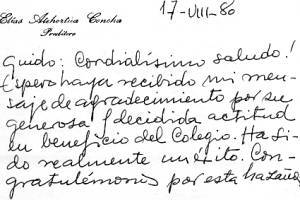 17-VIII-80
Elías Atehortúa Concha
Presbítero
Guido: Cordialísimo saludo!
Espero haya recibido mi men-
saje de agradecimiento por su
generosa y decidida actitud
en beneficio del Colegio. Ha si-
do realmente un éxito. Con-
gratulémonos por esta hazaña,